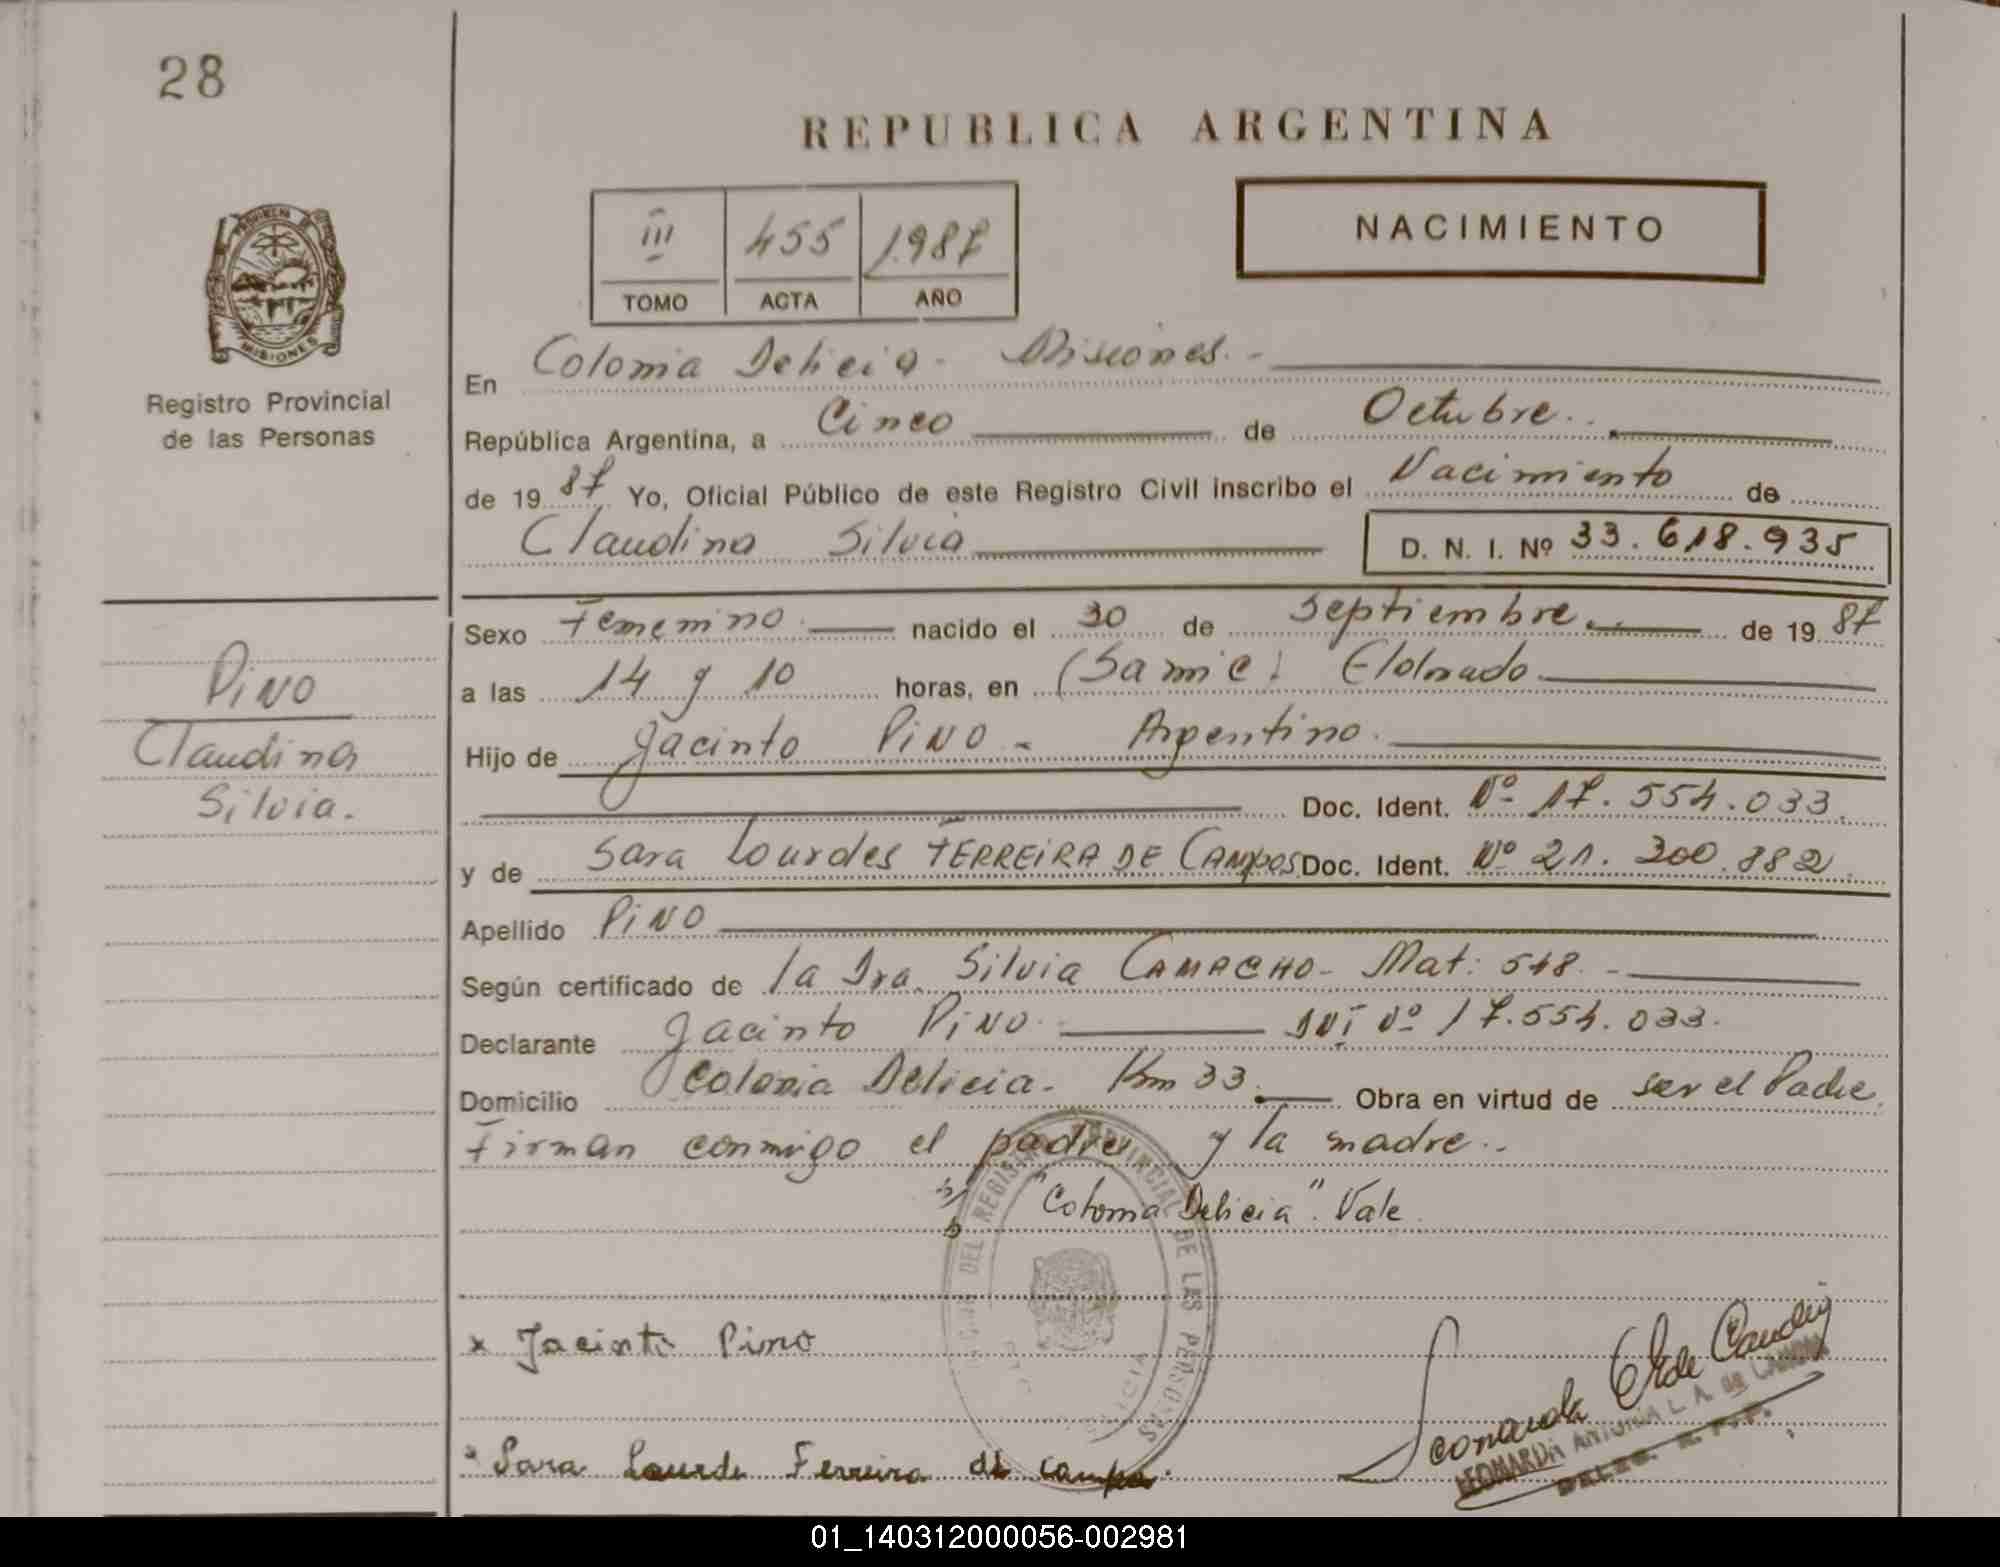 28
REPUBLICA ARGENTINA
PROVINCIA DE
MISIONES
Registro Provincial
de las Personas
III 455 1.987
TOMO ACTA AÑO
NACIMIENTO
En Colonia Delicia - Misiones. -
República Argentina, a Cinco de Octubre.
de 1987 Yo, Oficial Público de este Registro Civil inscribo el Nacimiento de
Claudina Silvia D. N. I. Nº 33.618.935
Sexo Femenino. nacido el 30 de Septiembre. de 1987
a las 14 y 10 horas, en (Samic) Eldorado
Hijo de Jacinto PiNO - Argentino.
Doc. Ident. Nº 17.554.033.
y de Sara Lourdes FERREiRA DE CAMPOS Doc. Ident. Nº 21.300.382.
Apellido PiNO
Según certificado de la Dra. Silvia CAMACHO - Mat: 518. -
Declarante Jacinto PiNO. DNI Nº 17.554.033.
Domicilio Colonia Delicia. Km 33. Obra en virtud de ser el Padre.
Firman conmigo el padre y la madre..
"Colonia Delicia". Vale.
PiNO
Claudina
Silvia.
REGISTRO PROVINCIAL DE LAS PERSONAS
x Jacinto Pino
Sara Lourde Ferreira de campo.
Leonarda
LEONARDA ANTONIA L. A. DE CANDIA
01_140312000056-002981